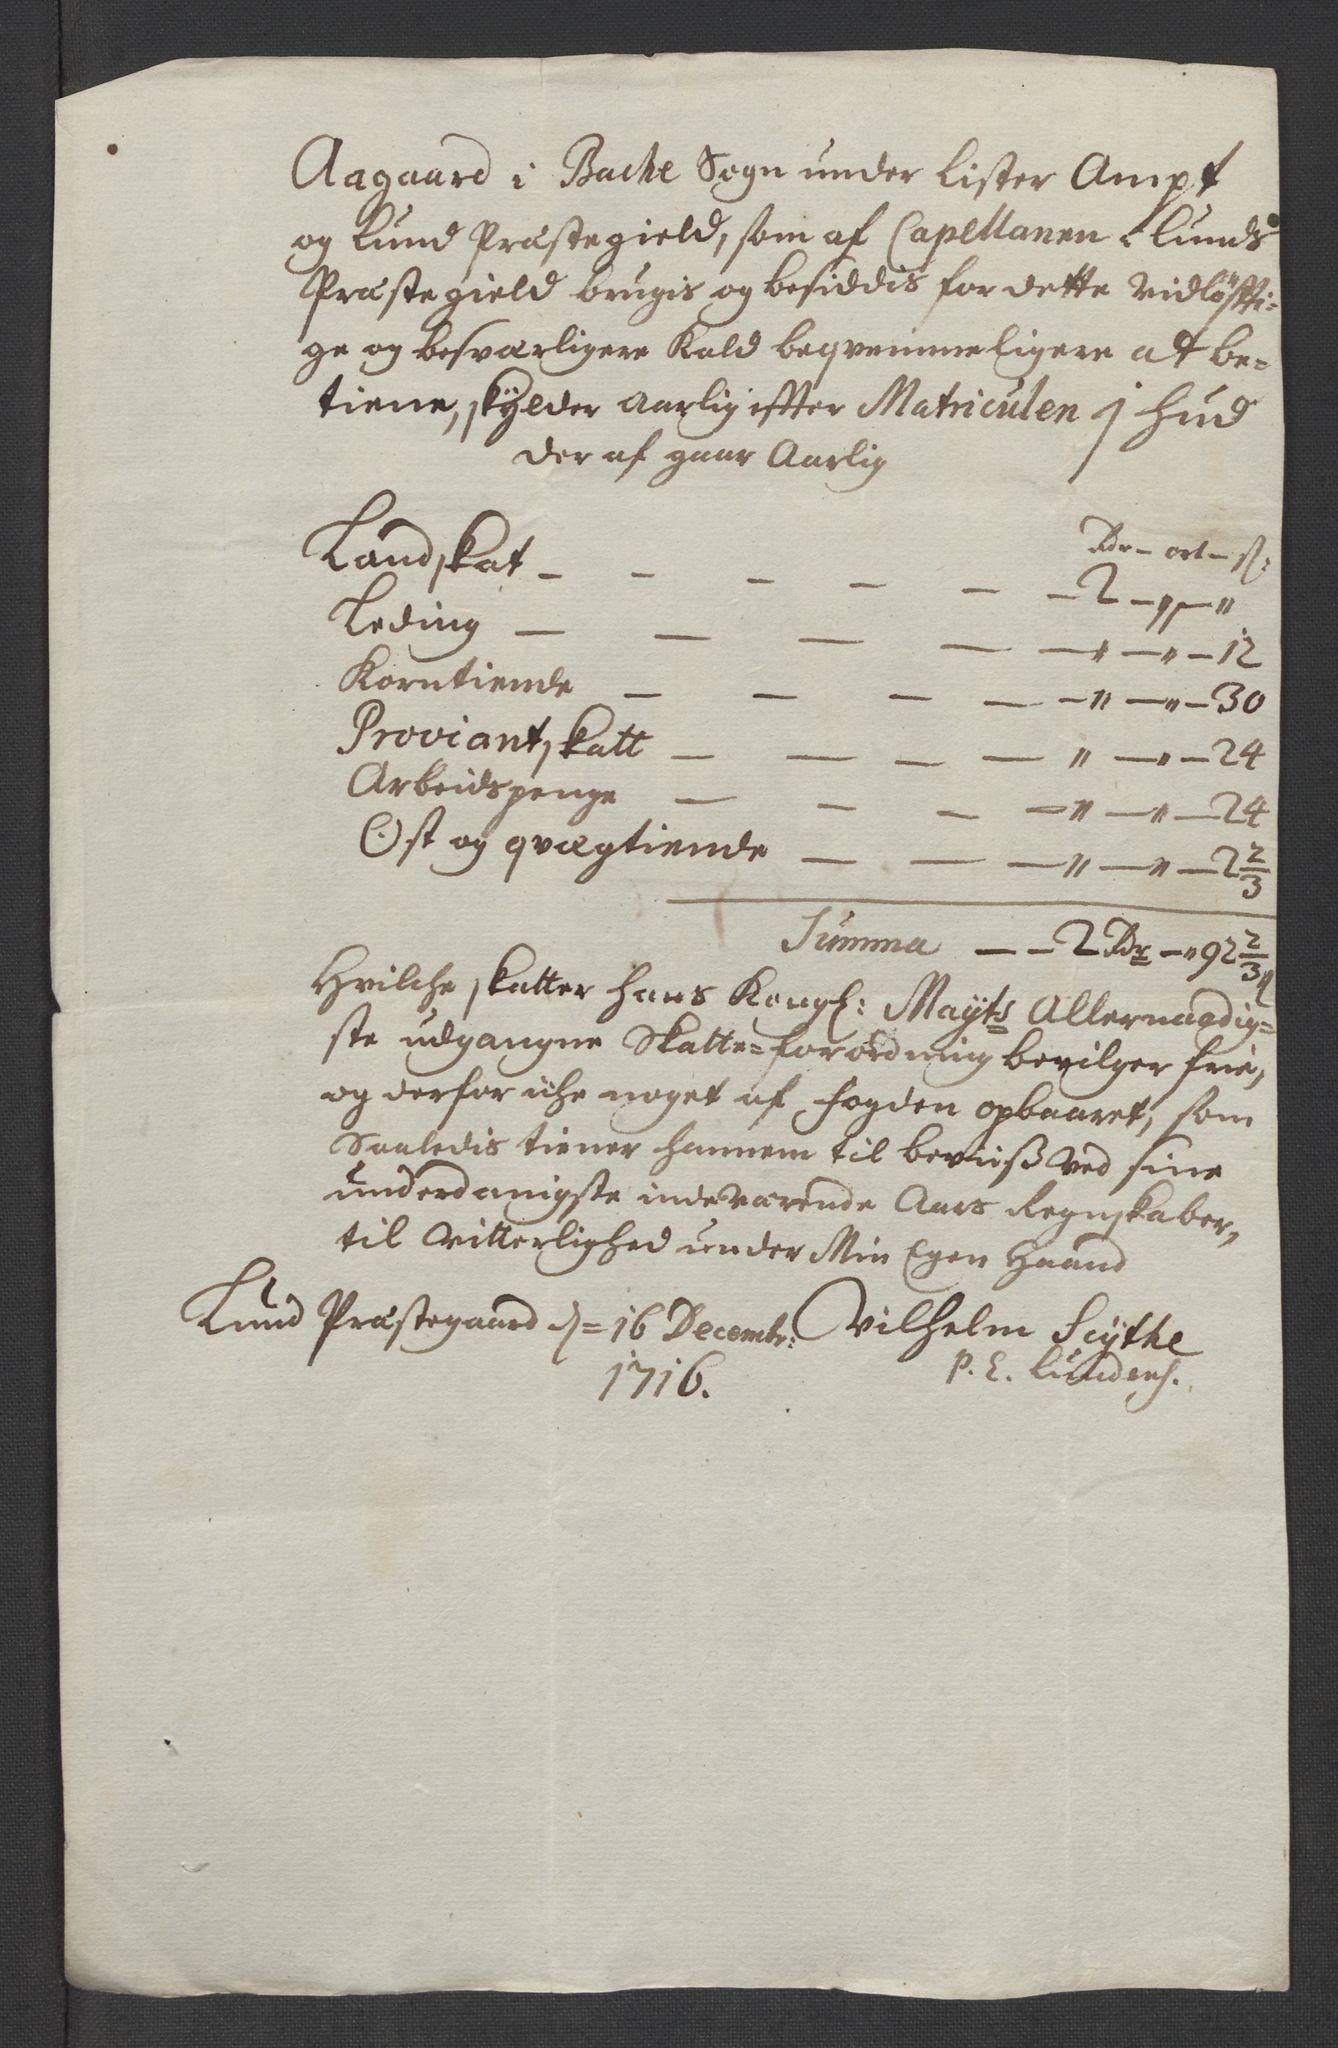 Aagaard i Backe Sogn under Lister Ampt
og Lund Præstegield, som af Capellanen i Lunds
Præstegield brugis og besiddis for dette vidløffti-
ge og besværligere Kald beqvemmeligere at be-
tiene, skylder aarlig effter Matriculen j hud
der af gaar Aarlig
Rdr - ort - ß:
Landskat - - - - - - 2 - " - "
Leding - - - - - " - " - 12
Korntiende - - - - - " - " - 30
Proviantskatt - - - - " - " - 24
Arbeidspenge - - - - " - " - 24
Ost og qvægtiende - - - " - " - 2 2/3
Summa - - 2 Rdr - " 92 2/3 ß
Hvilche skatter Hans Kongl: Mayts Allernaadig-
ste udgangne Skatte-forordning bevilger frie,
og derfor iche noget af fogden opbaaret, som
Saaledis tiener hannem til beviiß ved sine
underdanigste indeværende Aars Regnskaber,
til Vitterlighed under Min Egen Haand
Lund Præstegaard d= 16 Decembr: Vilhelm Scythe
1716. P. E. Lundens.